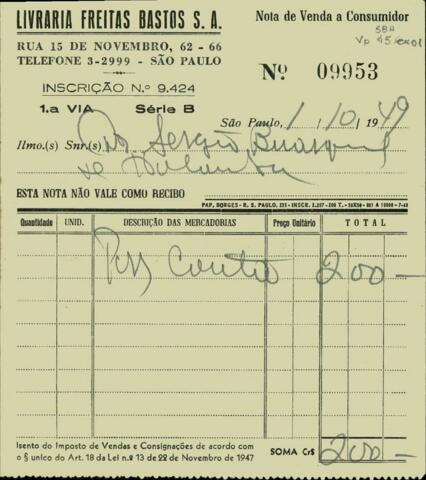 LIVRARIA FREITAS BASTOS S. A.
Nota de Venda a Consumidor
SBH
RUA 15 DE NOVEMBRO, 62 - 66
TELEFONE 3-2999 - SÃO PAULO
INSCRIÇÃO N.º 9.424
Nº 09953
1.a VIA Série B
São Paulo, 1 / 10 / 1949
Ilmo.(s) Snr.(s) Sergio Buarque
de Holanda
ESTA NOTA NÃO VALE COMO RECIBO
Quantidade UNID. DESCRIÇÃO DAS MERCADORIAS Preço Unitário TOTAL
Conta 200 —
Isento do Imposto de Vendas e Consignações de acordo com
o § unico do Art. 18 da Lei n.º 13 de 22 de Novembro de 1947
SOMA Cr$ 200 —